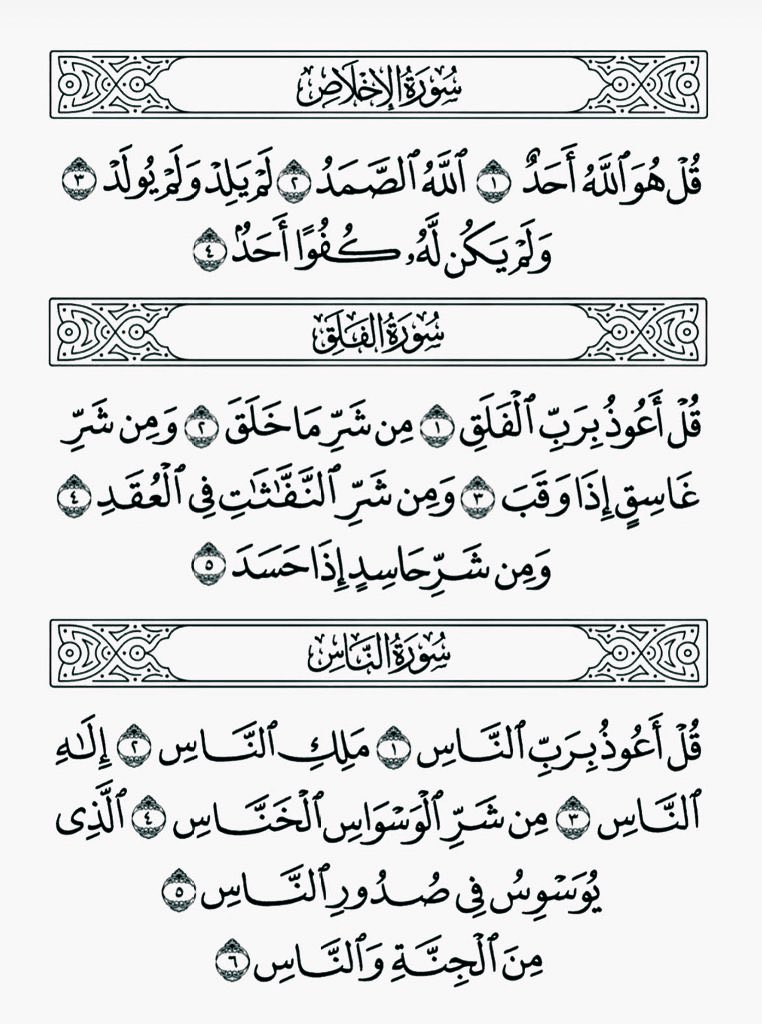 سُورَةُ الإِخْلَاصِ
قُلْ هُوَ ٱللَّهُ أَحَدٌ ١ ٱللَّهُ ٱلصَّمَدُ ٢ لَمْ يَلِدْ وَلَمْ يُولَدْ ٣
وَلَمْ يَكُن لَّهُۥ كُفُوًا أَحَدٌۢ ٤
سُورَةُ الفَلَقِ
قُلْ أَعُوذُ بِرَبِّ ٱلْفَلَقِ ١ مِن شَرِّ مَا خَلَقَ ٢ وَمِن شَرِّ
غَاسِقٍ إِذَا وَقَبَ ٣ وَمِن شَرِّ ٱلنَّفَّٰثَٰتِ فِي ٱلْعُقَدِ ٤
وَمِن شَرِّ حَاسِدٍ إِذَا حَسَدَ ٥
سُورَةُ النَّاسِ
قُلْ أَعُوذُ بِرَبِّ ٱلنَّاسِ ١ مَلِكِ ٱلنَّاسِ ٢ إِلَٰهِ
ٱلنَّاسِ ٣ مِن شَرِّ ٱلْوَسْوَاسِ ٱلْخَنَّاسِ ٤ ٱلَّذِى
يُوَسْوِسُ فِي صُدُورِ ٱلنَّاسِ ٥
مِنَ ٱلْجِنَّةِ وَٱلنَّاسِ ٦